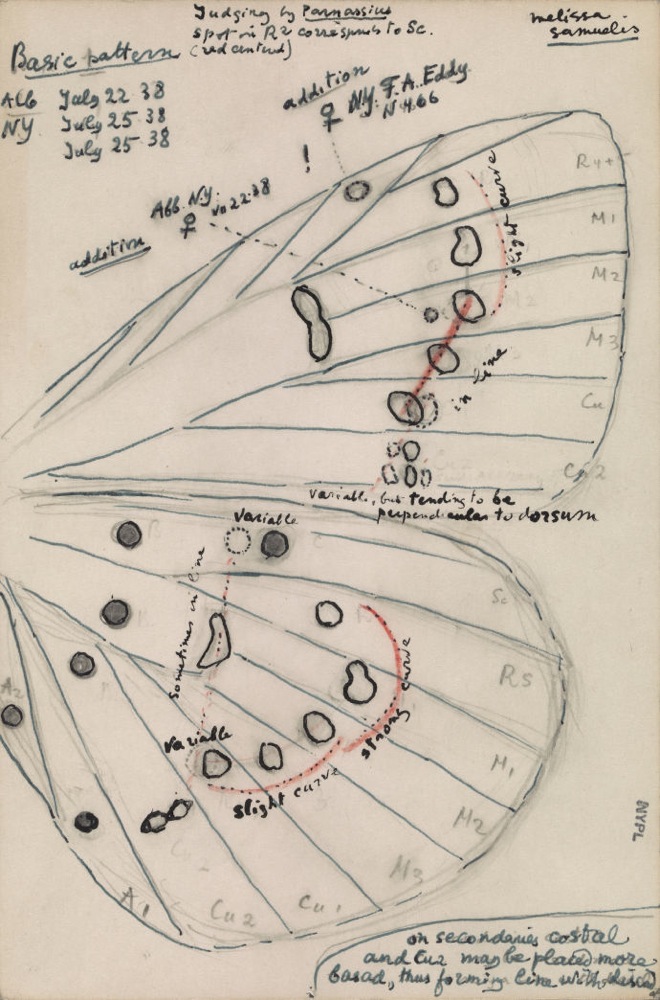 Judging by Parnassius
spot in R2 corresponds to Sc.
(red centred)
melissa
samuelis
Basic pattern
Alb July 22 38
NY July 25 38
July 25 38
addition
♀ NY. F.A. Eddy
N 4.66
!
Alb. N.Y.
♀ 22.38
addition
slight curve
R4+
M1
M2
M3
in line
Cu
Cu2
variable, but tending to be
perpendicular to dorsum
variable
sometimes in line
Sc
Rs
strong curve
A2
variable
M1
slight curve
M2
M3
Cu1
Cu2
A1
NYPL
on secondaries costal
and Cu2 may be placed more
basad, thus forming line with disc.